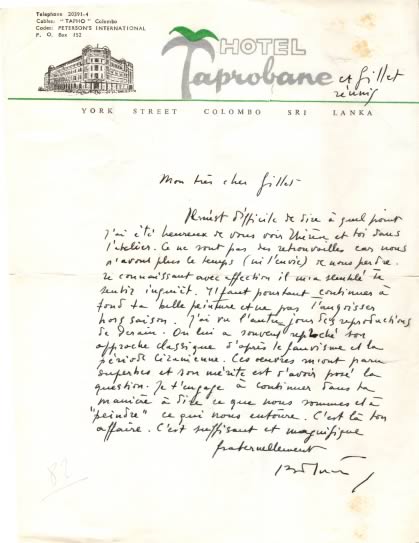 Telephone 20391-4
Cables: "TAPHO" Colombo
Codes: PETERSON'S INTERNATIONAL
P. O. Box 152
HOTEL
Taprobane
et Gillet
réunis
YORK STREET COLOMBO SRI LANKA
Mon très cher Gillet
Il m'est difficile de dire à quel point
j'ai été heureux de vous voir et toi dans
l'atelier. Ce ne sont pas des retrouvailles car nous
n'avons plus le temps (ni l'envie) de nous perdre.
Te connaissant avec affection il m'a semblé te
sentir inquiet. Il faut pourtant continuer à
fond ta belle peinture et ne pas l'angoisser
hors saison. J'ai vu l'autre jour des reproductions
de Derain. On lui a souvent reproché son
approche classique d'après le fauvisme et la
période cézanienne. Ces œuvres m'ont paru
superbes et son mérite est d'avoir posé la
question. Je t'engage à continuer dans ta
manière à dire ce que nous sommes et à
"peindre" ce qui nous entoure. C'est là ton
affaire. C'est suffisant et magnifique
fraternellement
82